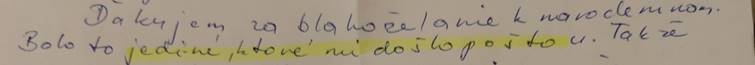 Ďakujem za blahoželanie k narodeninam.
Bolo to jediné, ktoré mi došlo poštou. Takže